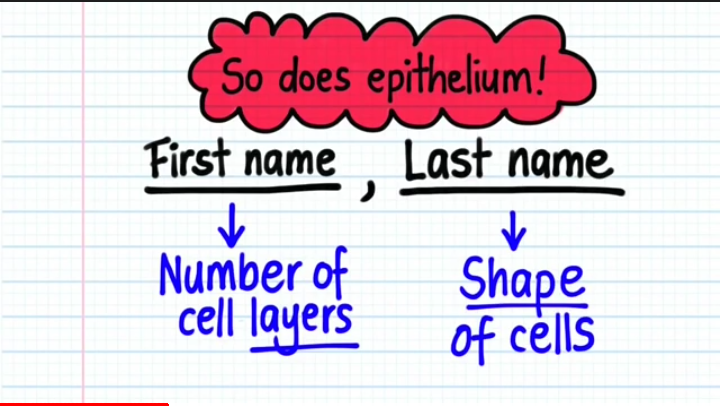 So does epithelium!
First name, Last name
Number of
cell layers
Shape
of cells